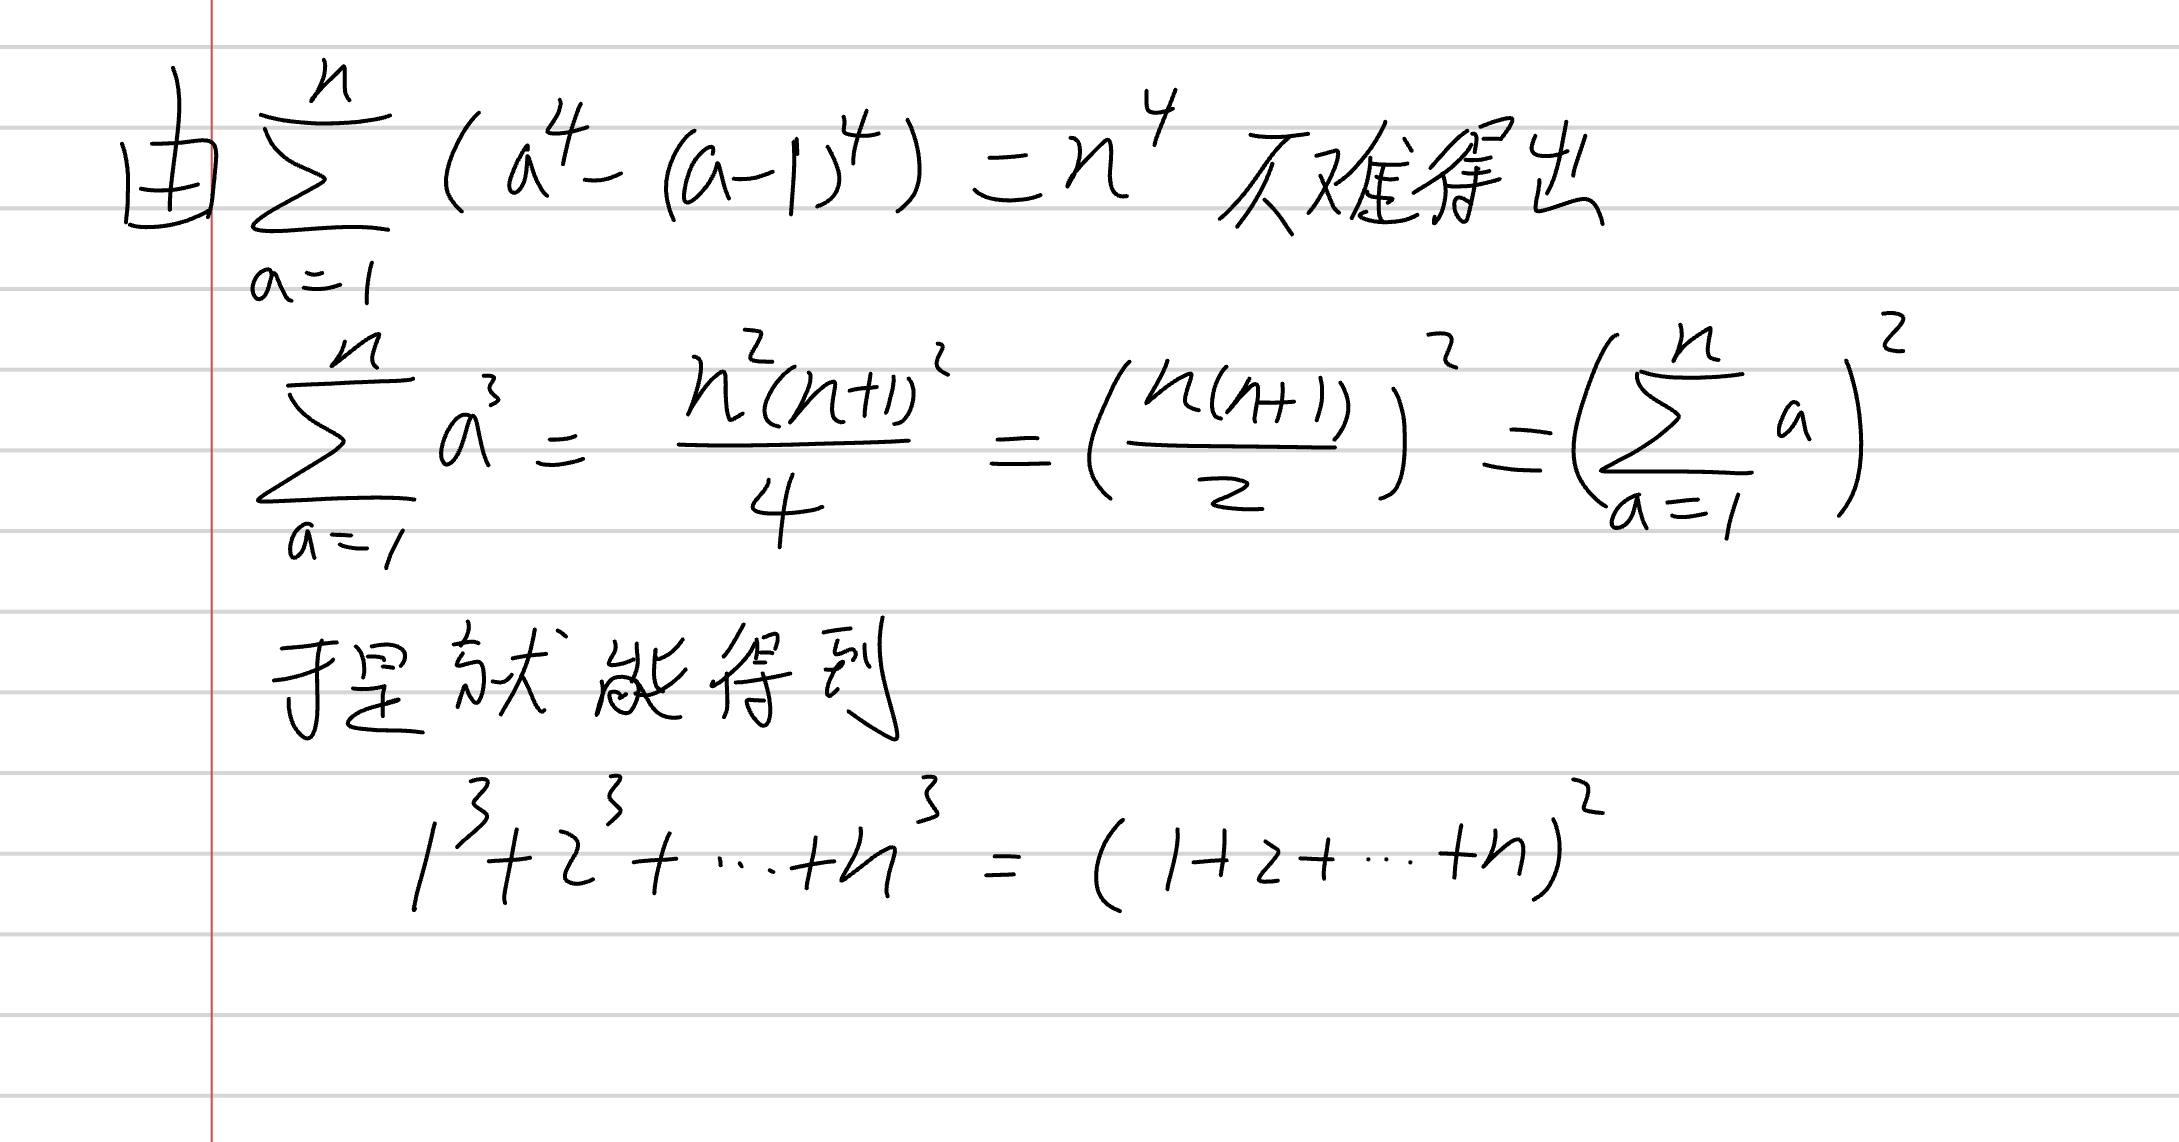 由 $\sum_{a=1}^{n} (a^4 - (a-1)^4) = n^4$ 不难得出
$\sum_{a=1}^{n} a^3 = \frac{n^2(n+1)^2}{4} = \left(\frac{n(n+1)}{2}\right)^2 = \left(\sum_{a=1}^{n} a\right)^2$
于是就能得到
$1^3 + 2^3 + \cdots + n^3 = (1 + 2 + \cdots + n)^2$